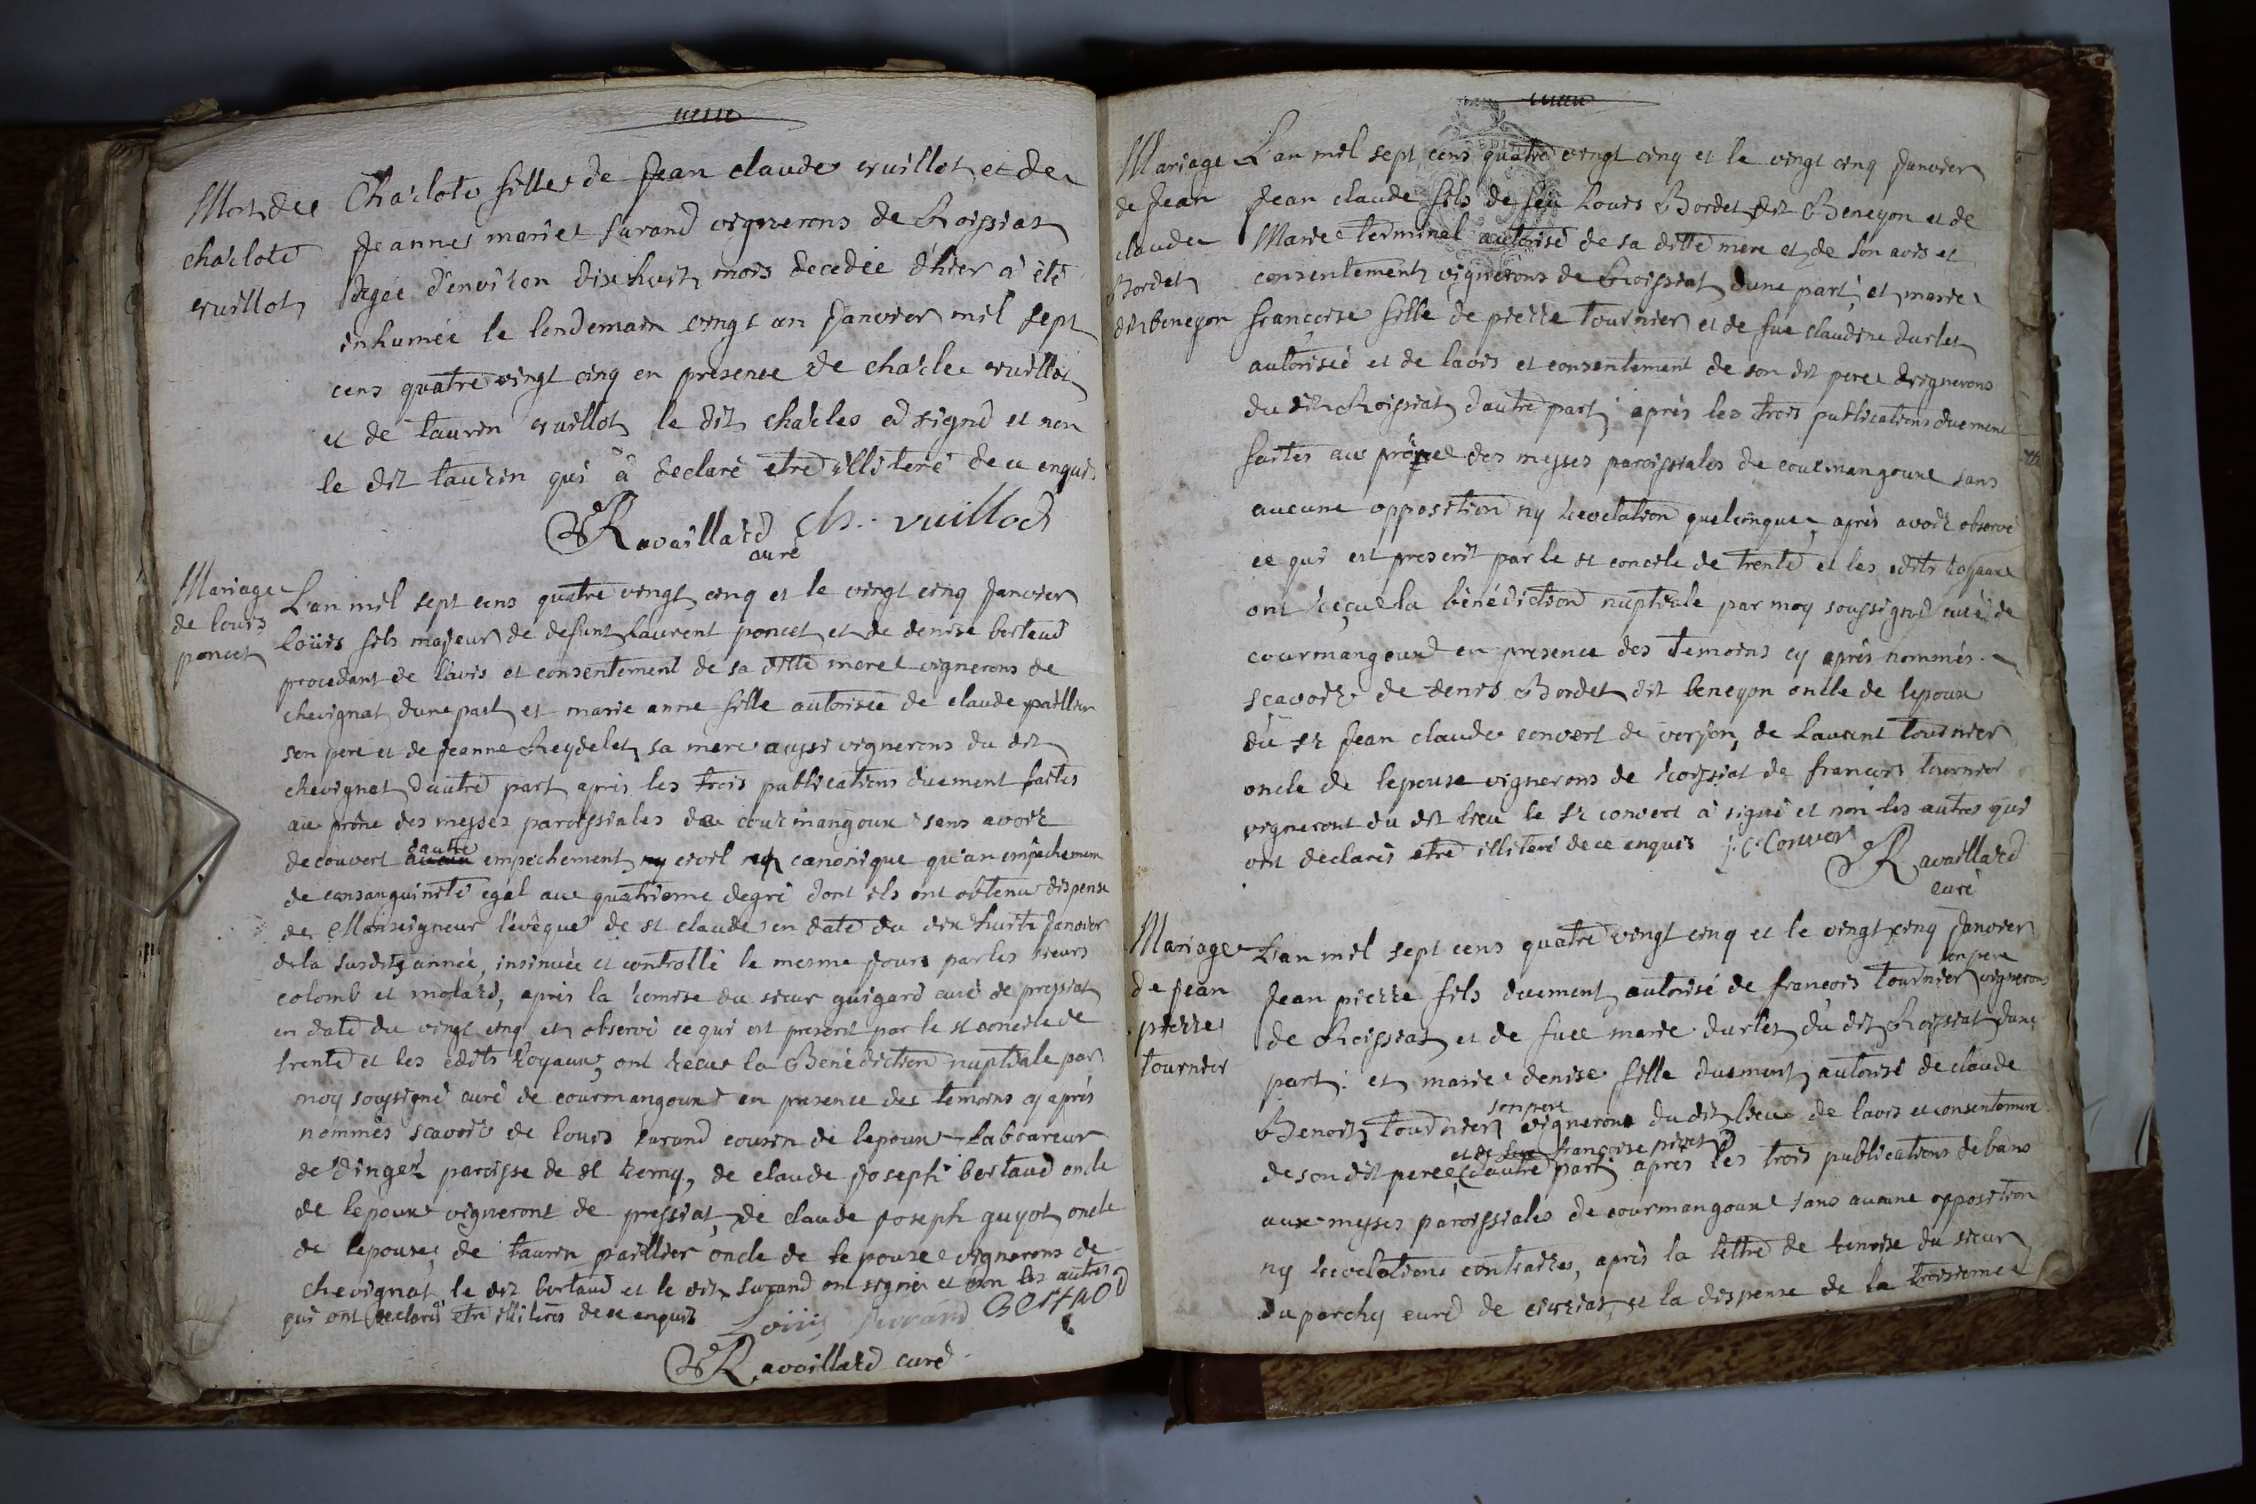 Mort de
charlote
vuillot
Charlote fille de Jean claude vuillot et de
Jeanne marie surand vignerons de Roissiat
agée d'environ dix huit mois decedée d'hier a été
inhumée le lendemain vingt un Janvier mil sept
cens quatre vingt cinq en presence de charle vuillot
et de taurin vuillot le dit charles a signé et non
le dit taurin qui a declaré etre illiteré de ce enquis
Ravaillard Ch. vuillod
curé
Mariage
de louis
poncet
L'an mil sept cens quatre vingt cinq et le vingt cinq Janvier
Loüis fils majeur de defunt Laurent poncet et de denise bertaud
procedant de l'avis et consentement de sa ditte mere vignerons de
chevignat dune part et marie anne fille autorisée de claude paillier
son pere et de Jeanne Reydelet sa mere aussi vignerons du dit
chevignat dautre part après les trois publications duement faites
au prône des messes paroissiales de courmangoux sans avoir
decouvert dautre empechement civil canonique qu'un empechement
de consanguinité egal au quatrieme degré dont ils ont obtenu dispense
de Monseigneur l'évêque de st claude en date du dix huit Janvier
de la susdite année, insinuée et controllé le mesme Jour par les sieurs
colomb et molard, après la remise du sieur guigard curé de pressiat
en date du vingt cinq et observé ce qui est prescrit par le st concile de
trente et les édits Royaux, ont recue la Bénédiction nuptiale par
moy soussigné curé de courmangoux en presence des temoins cy après
nommés scavoir de louis surand cousin de lepoux Laboureur
de Dingez paroisse de st remy, de claude Joseph bertaud oncle
de lepoux vigneront de pressiat, de claude Joseph guyot oncle
de lepouse, de taurin paillier oncle de lepouse vignerons de
chevignat le dit bertaud et le dit surand ont signé et non les autres
qui ont declaré etre illiteres de ce enquis Loüis surand Bertaud
Ravaillard curé
Mariage
de Jean
claude
Bordet
dit beneyon
L'an mil sept cens quatre vingt cinq et le vingt cinq Janvier
Jean claude fils de feu Louis Bordet dit Beneyon et de
Marie terminal autorisé de sa ditte mere et de son avis et
consentement vignerons de Roissiat dune part, et marie
françoise fille de pierre tournier et de fue claudine durlet
autorisée et de lavis et consentement de son dit pere vignerons
du dit Roissiat dautre part, après les trois publications duement
faites au prône des messes paroissiales de courmangoux sans
aucune opposition ny revelation quelconque, après avoir observé
ce qui est prescrit par le st concile de trente et les édits royaux
ont reçue la bénédiction nuptiale par moy soussigné curé de
courmangoux en presence des temoins cy après nommés
scavoir de denis Bordet dit beneyon oncle de lepoux
du sr Jean claude convert de verjon, de Laurent tournier
oncle de lepouse vignerons de roissiat de francois tournier
vigneront du dit lieu le sr convert à signé et non les autres qui
ont declarés etre illiteré de ce enquis J. C. Convert
Ravaillard
curé
Mariage
de Jean
pierre
tournier
L'an mil sept cens quatre vingt cinq et le vingt cinq Janvier
son pere
Jean pierre fils duement autorisé de françois tournier vignerons
de Roissiat et de fuee marie durlet du dit Roissiat dune
part: et marie denise fille duement autorisé de claude
son pere
Benoit tournier vignerons du dit lieu de lavis et consentement
et de françoise piret
de son dit pere dautre part après les trois publications de bans
aux messes paroissiales de courmangoux sans aucune opposition
ny revelations contraires, après la lettre de remise du sieur
duparchy curé de cuisiat, et la dispense de la troisieme